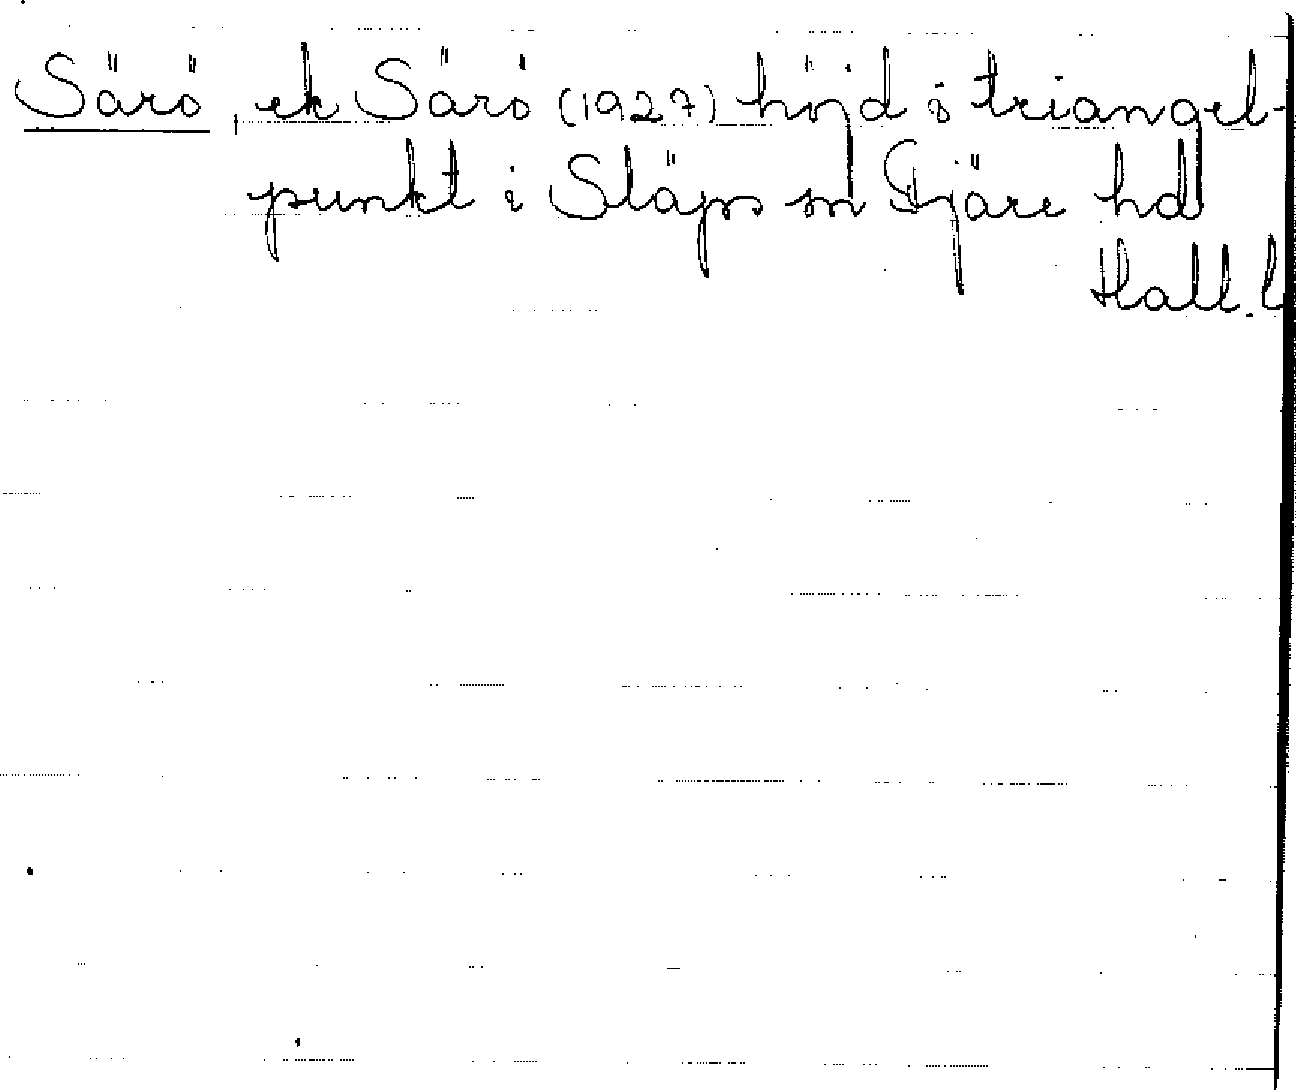 Särö, ek Särö (1927) höjd i triangel-
punkt i Släps sn Fjäre hd
Hall. l